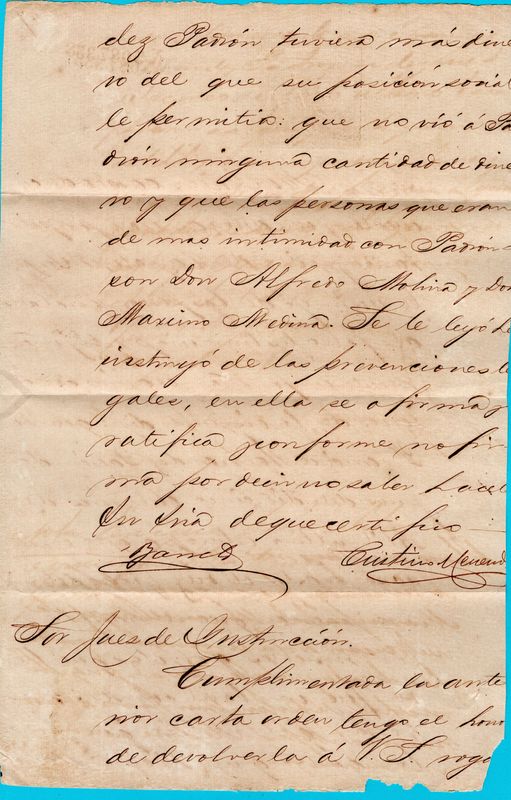 dez Padrón tuviera más dine
ro del que su posición social
le permitia: que no vió á Pa
drón ninguna cantidad de dine
ro y que las personas que eran
de mas intimidad con Padrón
son Don Alfredo Molina y Don
Maximo Medina. Se le leyó é
instruyó de las prevenciones le
gales, en ella se afirma y
ratifica y conforme no fir
ma por decir no saber hacerlo
Su Sria de que certifico
Sor Juez de Instrucción.
Cumplimentada la ante
rior carta orden tengo el hono
de devolverla á V. S. roga